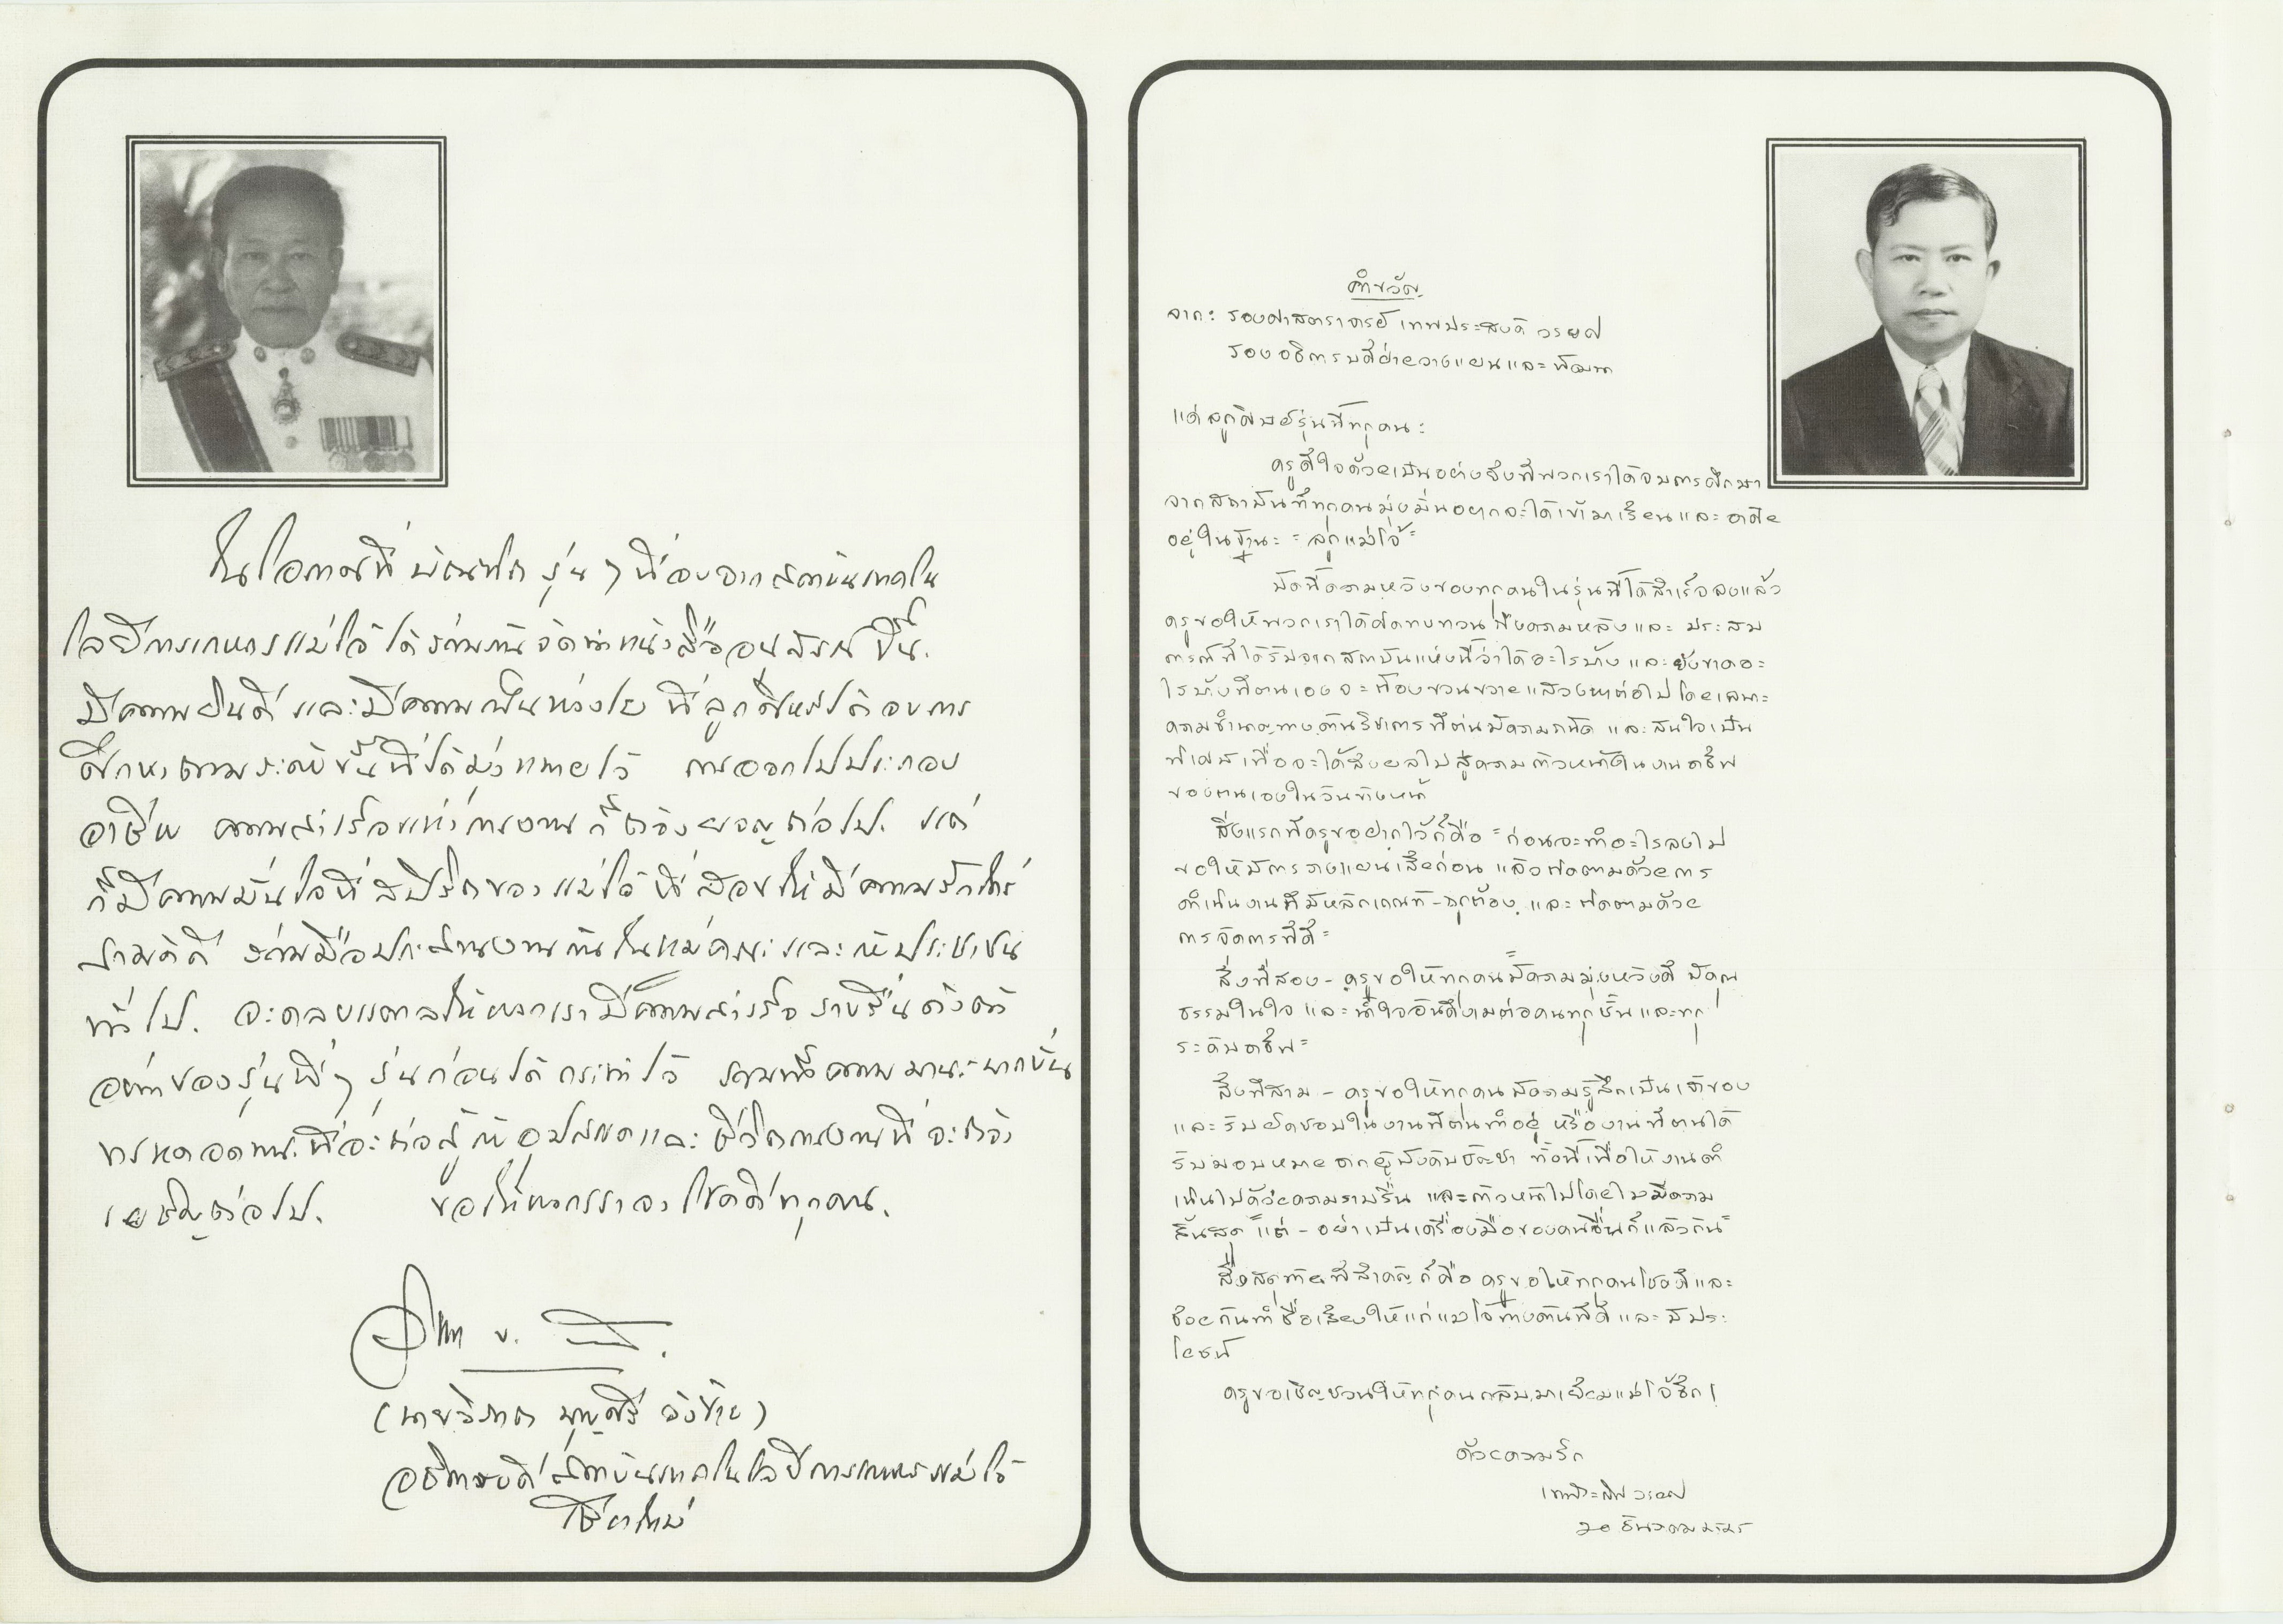 ในโอกาสที่ บัณฑิต รุ่น ๆ นี้ จบจากสถาบันเทคโน
โลยีการเกษตรแม่โจ้ ได้ร่วมกันจัดทำหนังสืออนุสรณ์ ขึ้น.
มีความยินดี และมีความเป็นห่วงใย ที่ลูกศิษย์ได้จบการ
ศึกษาตามระดับชั้นที่ได้มุ่งหมายไว้ การออกไปประกอบ
อาชีพ ความสำเร็จแห่งการงานก็ต้องผจญต่อไป. แต่
ก็มีความมั่นใจที่สปิริตของแม่โจ้ ที่สอนให้มีความรักใคร่
สามัคคี ร่วมมือประสานงานกันในหมู่คณะและกับประชาชน
ทั่วไป. จะดลบันดาลให้พวกเรามีความสำเร็จ ราบรื่น ดังตัว
อย่างของรุ่นพี่ๆ รุ่นก่อนได้กระทำไว้ รวมทั้งความมานะบากบั่น
ทรหดอดทน.ที่จะต่อสู้กับอุปสรรคและชีวิตการงานที่จะต้อง
เผชิญต่อไป. ขอให้พวกเราจงโชคดีทุกคน.
(นายวิภาต บุญศรี วังซ้าย)
อธิการบดี สถาบันเทคโนโลยีการเกษตรแม่โจ้
เชียงใหม่
คำขวัญ
จาก: รองศาสตราจารย์ เทพประสงค์ วรยศ
รองอธิการบดีฝ่ายวางแผนและพัฒนา
แด่ ลูกศิษย์รุ่นนี้ทุกคน:
ครูดีใจด้วยเป็นอย่างยิ่งที่พวกเราได้จบการศึกษา
จากสถาบันที่ทุกคนมุ่งมั่นอยากจะได้เข้ามาเรียนและอาศัย
อยู่ในฐานะ "ลูกแม่โจ้"
บัดนี้ความหวังของทุกคนในรุ่นนี้ได้สำเร็จลงแล้ว
ครูขอให้พวกเราได้คิดทบทวนถึงความหลังและ ประสบ
การณ์ที่ได้รับจากสถาบันแห่งนี้ว่าได้อะไรบ้าง และยังขาดอะ
ไรบ้างที่ตนเองจะต้องขวนขวายแสวงหาต่อไปโดยเฉพาะ
ความชำนาญทางด้านวิชาการที่ตนมีความถนัด และสนใจเป็น
พิเศษเพื่อจะได้ส่งผลไปสู่ความก้าวหน้าในงานอาชีพ
ของตนเองในวันข้างหน้า
สิ่งแรกที่ครูขอฝากไว้ก็คือ "ก่อนจะทำอะไรลงไป
ขอให้มีการวางแผนเสียก่อน แล้วติดตามด้วยการ
ดำเนินงานที่มีหลักเกณฑ์-ถูกต้อง และติดตามด้วย
การจัดการที่ดี"
สิ่งที่สอง - ครูขอให้ทุกคนมีความมุ่งหวังดี มีคุณ
ธรรมในใจ และน้ำใจอันดีงามต่อคนทุกชั้นและทุก
ระดับอาชีพ"
สิ่งที่สาม - ครูขอให้ทุกคนมีความรู้สึกเป็นเจ้าของ
และรับผิดชอบในงานที่ตนทำอยู่ หรืองานที่ตนได้
รับมอบหมายจากผู้บังคับบัญชา ทั้งนี้เพื่อให้งานดำ
เนินไปด้วยความราบรื่น และก้าวหน้าไปโดยไม่มีความ
สิ้นสุด "แต่ - อย่าเป็นเครื่องมือของคนอื่นก็แล้วกัน"
สิ่งสุดท้ายที่สำคัญก็คือ ครูขอให้ทุกคนโชคดีและ
ช่วยกันทำชื่อเสียงให้แก่แม่โจ้ทางด้านที่ดี และมีประ
โยชน์
ครูขอเชิญชวนให้ทุกคนกลับมาเยี่ยมแม่โจ้อีก!
ด้วยความรัก
เทพประสงค์ วรยศ
๒๐ ธันวาคม ๒๕๒๕